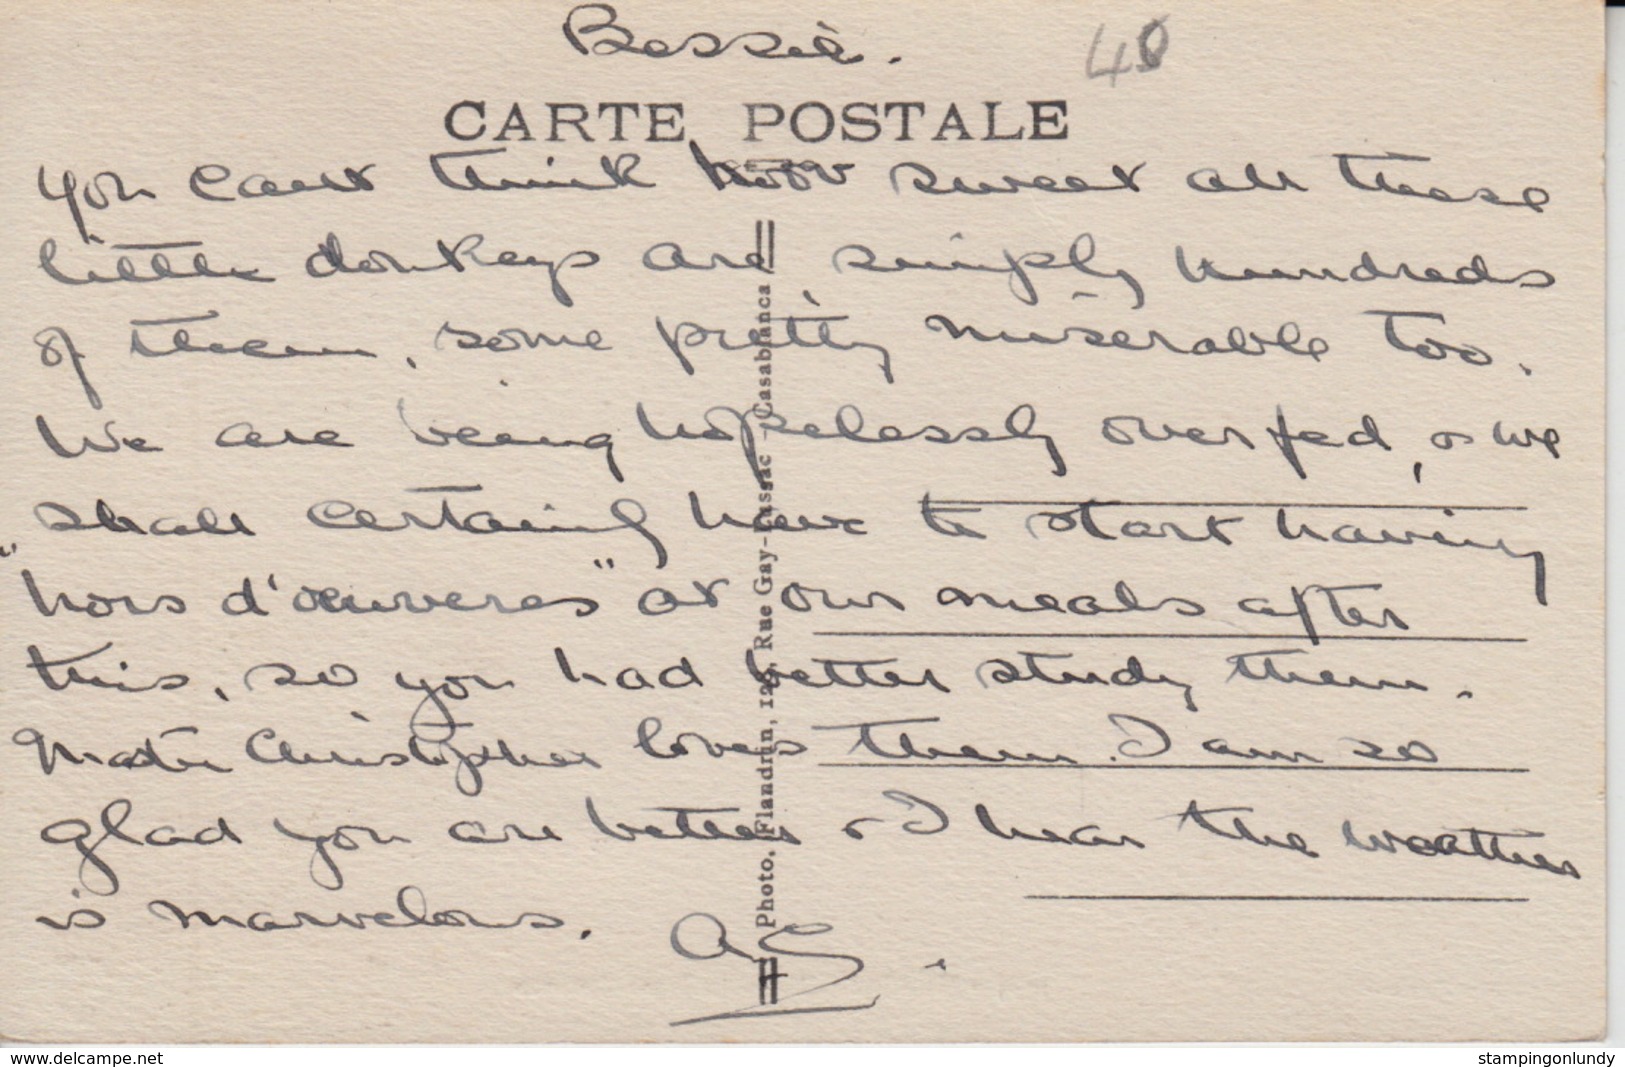 Bessie.
40
CARTE POSTALE
You cant think how sweet all these
little donkeys are, simply hundreds
of them, some pretty miserable too.
We are being hopelessly over fed, & we
shall certainly have to start having
"hors d'oeuveres" at our meals after
this, so you had better study them.
Christopher loves them. I am so
glad you are better & I hear the weather
is marvelous. A.S.
Photo. Flandrin, Rue Gay-Lussac - Casablanca
www.delcampe.net
stampingonlundy